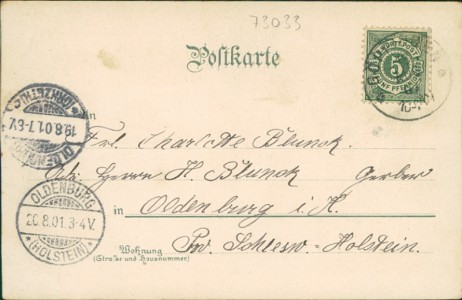 73033
Postkarte
WÜRTT. POST
5
FÜNF PFENNIG
An
Frl. Charlotte Blunck.
Herrn H. Blunck Gerber
in Oldenburg i. H.
Wohnung
(Straße und Hausnummer)
Prov. Schlesw-Holstein.
19.8.01.7-8V.
OLDENBURG
20.8.01.3-4V.
*(HOLSTEIN)*